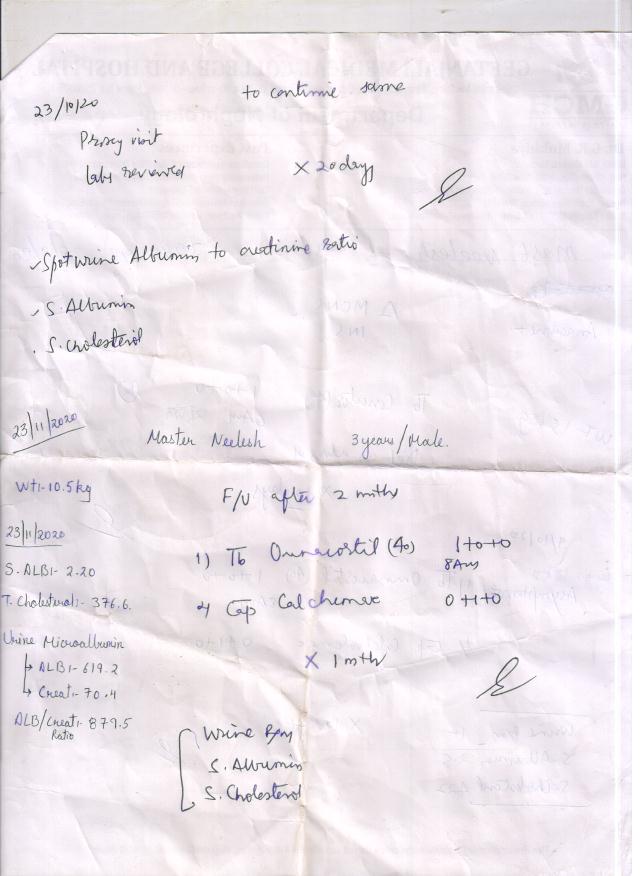 to continue same
23/10/20
Proxy visit
labs reviewed X 20 days
✓ Spot urine Albumin to creatinine ratio
✓ S. Albumin
. S. cholesterol
23/11/2020
Master Neelesh 3 years/Male.
Wt:- 10.5kg F/U after 2 mths
23/11/2020
1) Tb Omnacortil (40) 1+0+0
8am
S. ALB:- 2.20
T. Cholesterol:- 376.6.
2) Cap 0+1+0
Urine Microalbumin
X 1 mth
↳ ALB:- 619.2
↳ Creat:- 70.4
ALB/Creat:- 879.5
Ratio
Urine
S. Albumin
S. Cholesterol